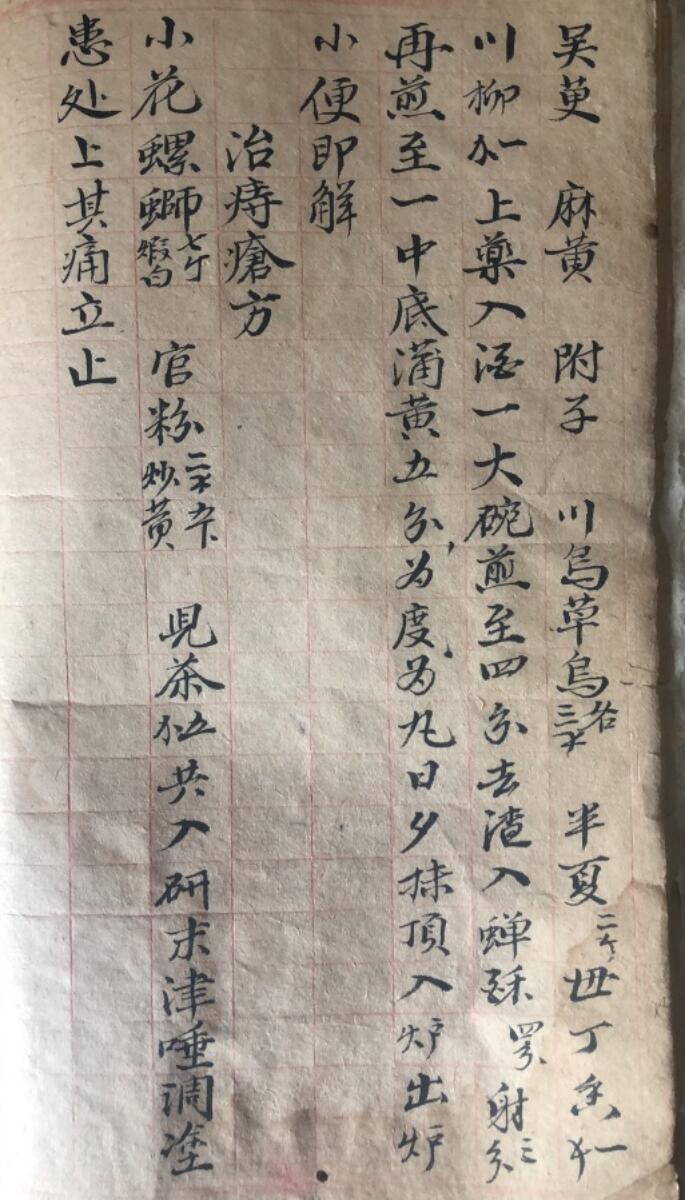 吴萸 麻黄 附子 川乌草乌各三 半夏二个 丁香一
川柳一上藥入酒一大碗煎至四分去渣入蝉酥 射三分
再煎至一中底蒲黄五分为度为丸日夕抹頂入炉出炉
小便即解
治痔瘡方
小花螺螄七个煅白 官粉二五卜炒黄 児茶五共入研末津唾调塗
患处上其痛立止